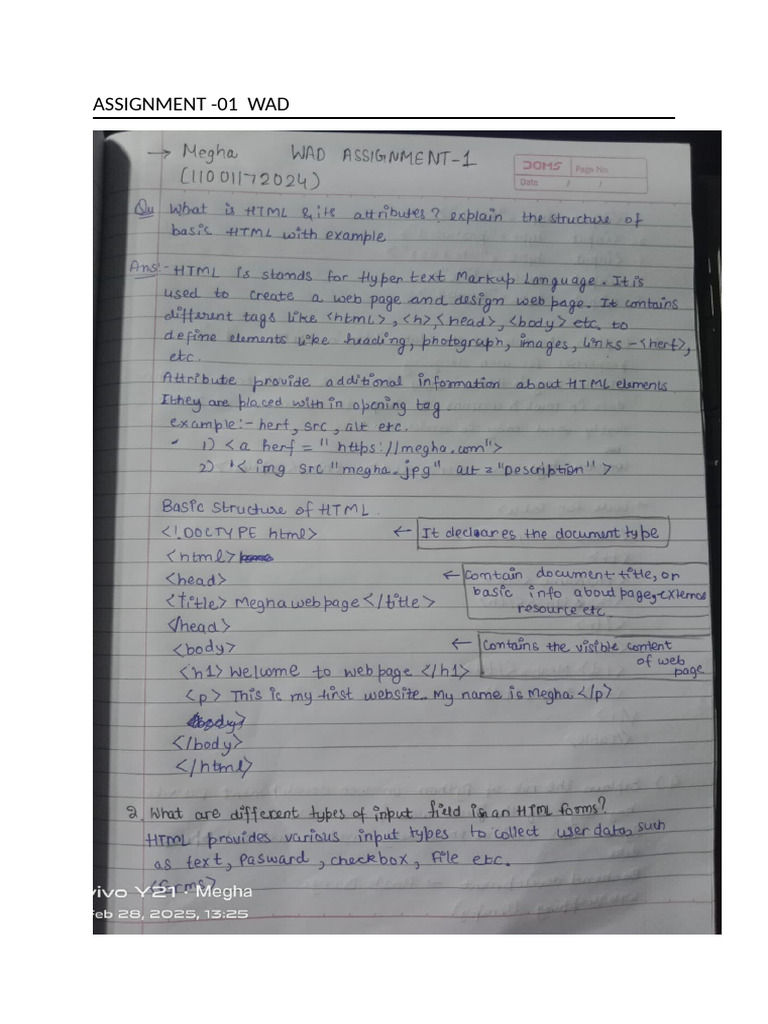 ASSIGNMENT -01 WAD
→ Megha WAD ASSIGNMENT-1
(11001172024)
DOMS Page No.
Date / /
Qu What is HTML & its attributes? explain the structure of
basic HTML with example
Ans:- HTML is stands for Hyper text Markup Language. It is
used to create a web page and design web page. It contains
different tags like <html>, <h>, <head>, <body> etc. to
define elements like heading, photograph, images, links - <herf>,
etc.
Attribute provide additional information about HTML elements
they are placed with in opening tag
example:- herf, src, alt etc.
1) <a herf = "https://megha.com">
2) < img src "megha.jpg" alt = "Description" >
Basic Structure of HTML
<!DOCTYPE html> ← It declares the document type
<html>
<head> ← Contain document title, or
<Title> Megha web page </title> basic info about page, external
resource etc.
</head>
<body> ← Contains the visible content
of web
<h1> Welcome to web page </h1> page
<p> This is my first website. My name is Megha </p>
</body>
</html>
2. What are different types of input field in an HTML forms?
HTML provides various input types to collect user data, such
as text, Pasward, checkbox, file etc.
<forms>
vivo Y21 · Megha
Feb 28, 2025, 13:25